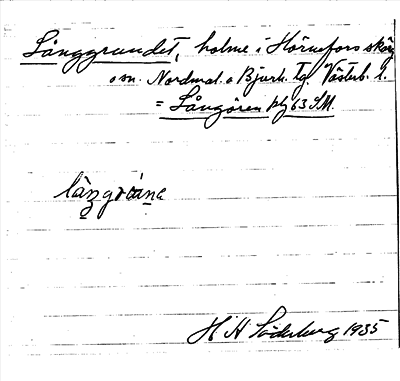 Långgrundet, holme i Hörnefors skärg.
o sn. Nordmal. o Bjurh. tg. Västerb. l.
= Långören blj 63 SM.
H H Söderberg 1935